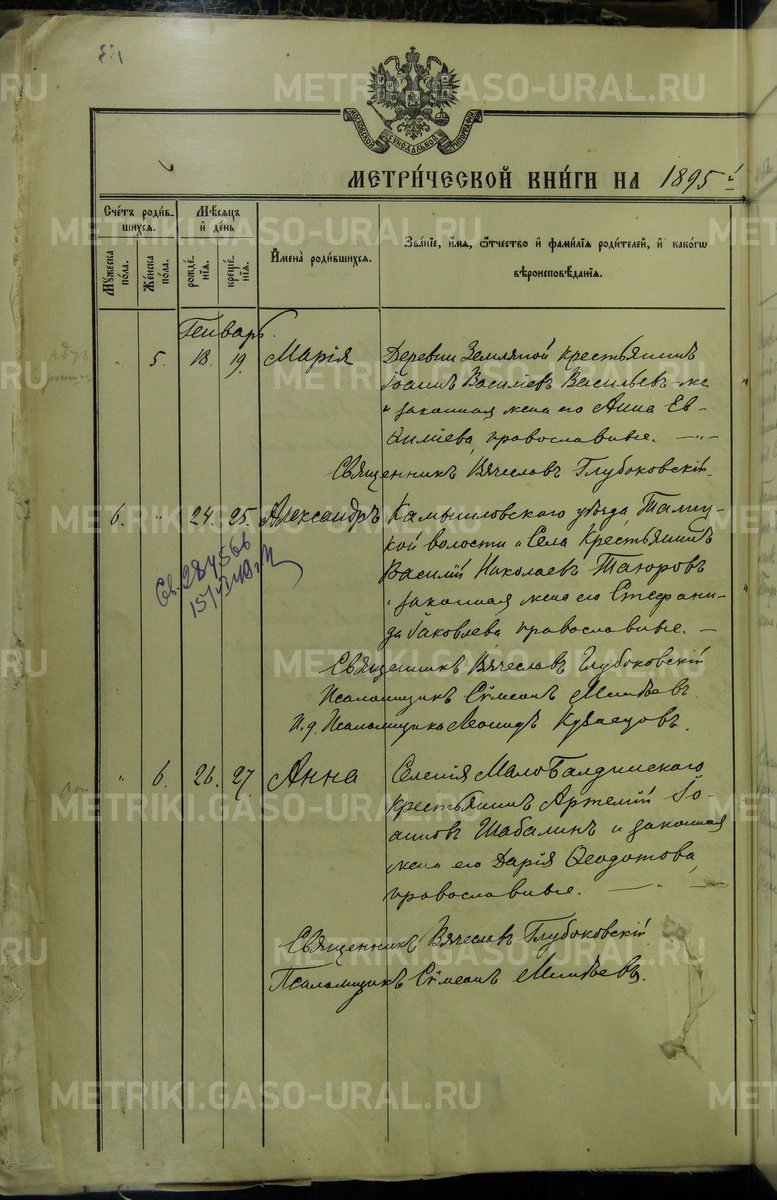 METRIKI.GASO-URAL.RU
МОСКОВСКОЙ СѴНОДАЛЬНОЙ ТИПОГРАФІИ
МЕТРИ́ЧЕСКОЙ КНИ́ГИ НА 1895 й
Сче́тъ роди́в-
шихся.
Мꙋжеска по́ла.
Же́нска по́ла.
Мѣ́сяцъ
и҆ де́нь
рожде́-
нїѧ.
креще́-
нїѧ.
И҆мена̀ роди́вшихся.
Зва́нїе, и҆́мѧ, ѻ҆́тчество и҆ фами́лїѧ роди́телей, и҆ како́гѡ
вѣроисповѣ́данїѧ.
Генварь.
" 5. 18. 19. Марія
Деревни Земляной крестьянинъ
Іоаннъ Василіевъ Васильевъ же
и законная жена его Анна Ев-
ѳиміева, православные.
Священникъ Вячеславъ Глубоковскій.
6. " 24. 25. Александръ
Камышловскаго уѣзда, Талиц-
кой волости и села Крестьянинъ
Василій Николаевъ
и законная жена его Стефани-
да Іаковлева православные.
Св. 284566
Священникъ Вячеславъ Глубоковскій
Псаломщикъ Сѵмеонъ
И.д. Псаломщика Леонидъ Кузнецовъ.
" 6. 26. 27. Анна
Селенія
крестьянинъ Артемій Іо-
анновъ Шабалинъ и законная
жена его Дарія Ѳеодотова,
православные.
Священникъ Вячеславъ Глубоковскій
Псаломщикъ Сѵмеонъ